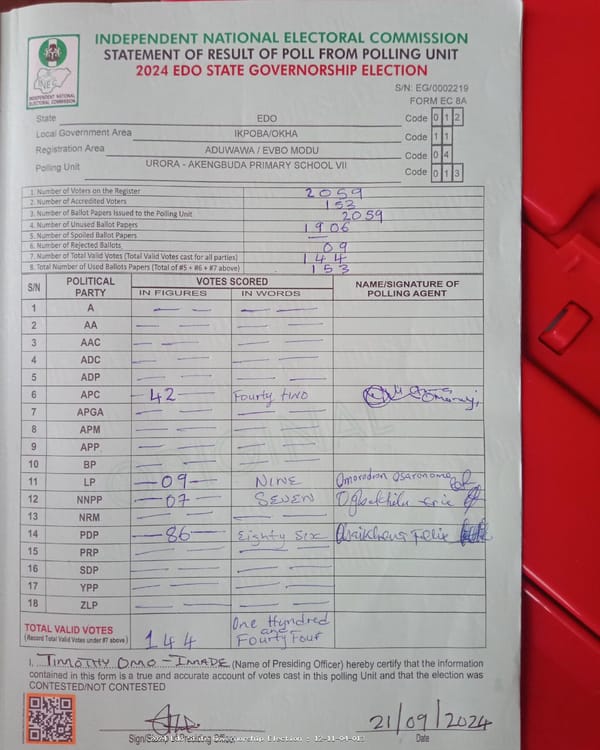 INDEPENDENT NATIONAL ELECTORAL COMMISSION
STATEMENT OF RESULT OF POLL FROM POLLING UNIT
2024 EDO STATE GOVERNORSHIP ELECTION
INEC
INDEPENDENT NATIONAL ELECTORAL COMMISSION
S/N: EG/0002219
FORM EC 8A
State EDO Code 0 1 2
Local Government Area IKPOBA/OKHA Code 1 1
Registration Area ADUWAWA / EVBO MODU Code 0 4
Polling Unit URORA - AKENGBUDA PRIMARY SCHOOL VII Code 0 1 3
1. Number of Voters on the Register 2059
2. Number of Accredited Voters 153
3. Number of Ballot Papers Issued to the Polling Unit 2059
4. Number of Unused Ballot Papers 1906
5. Number of Spoiled Ballot Papers —
6. Number of Rejected Ballots 09
7. Number of Total Valid Votes (Total Valid Votes cast for all parties) 144
8. Total Number of Used Ballots Papers (Total of #5 + #6 + #7 above) 153
S/N POLITICAL PARTY VOTES SCORED NAME/SIGNATURE OF POLLING AGENT
IN FIGURES IN WORDS
1 A — — — —
2 AA — — — —
3 AAC — — — —
4 ADC — — — —
5 ADP — — — —
6 APC —42— Fourty two
7 APGA — — — —
8 APM — — — —
9 APP — — — —
10 BP — — — —
11 LP —09— NINE Omorodion Osaronomo
12 NNPP —07— SEVEN
13 NRM — — — —
14 PDP —86— Eighty Six Felix
15 PRP — — — —
16 SDP — — — —
17 YPP — — — —
18 ZLP — — — —
TOTAL VALID VOTES (Record Total Valid Votes under #7 above) 144 One Hundred and Fourty Four
I, TIMOTHY OMO-IMADE (Name of Presiding Officer) hereby certify that the information
contained in this form is a true and accurate account of votes cast in this polling Unit and that the election was
CONTESTED/NOT CONTESTED
21/09/2024
Date
2024 Edo State Governorship Election - 12-11-04-013